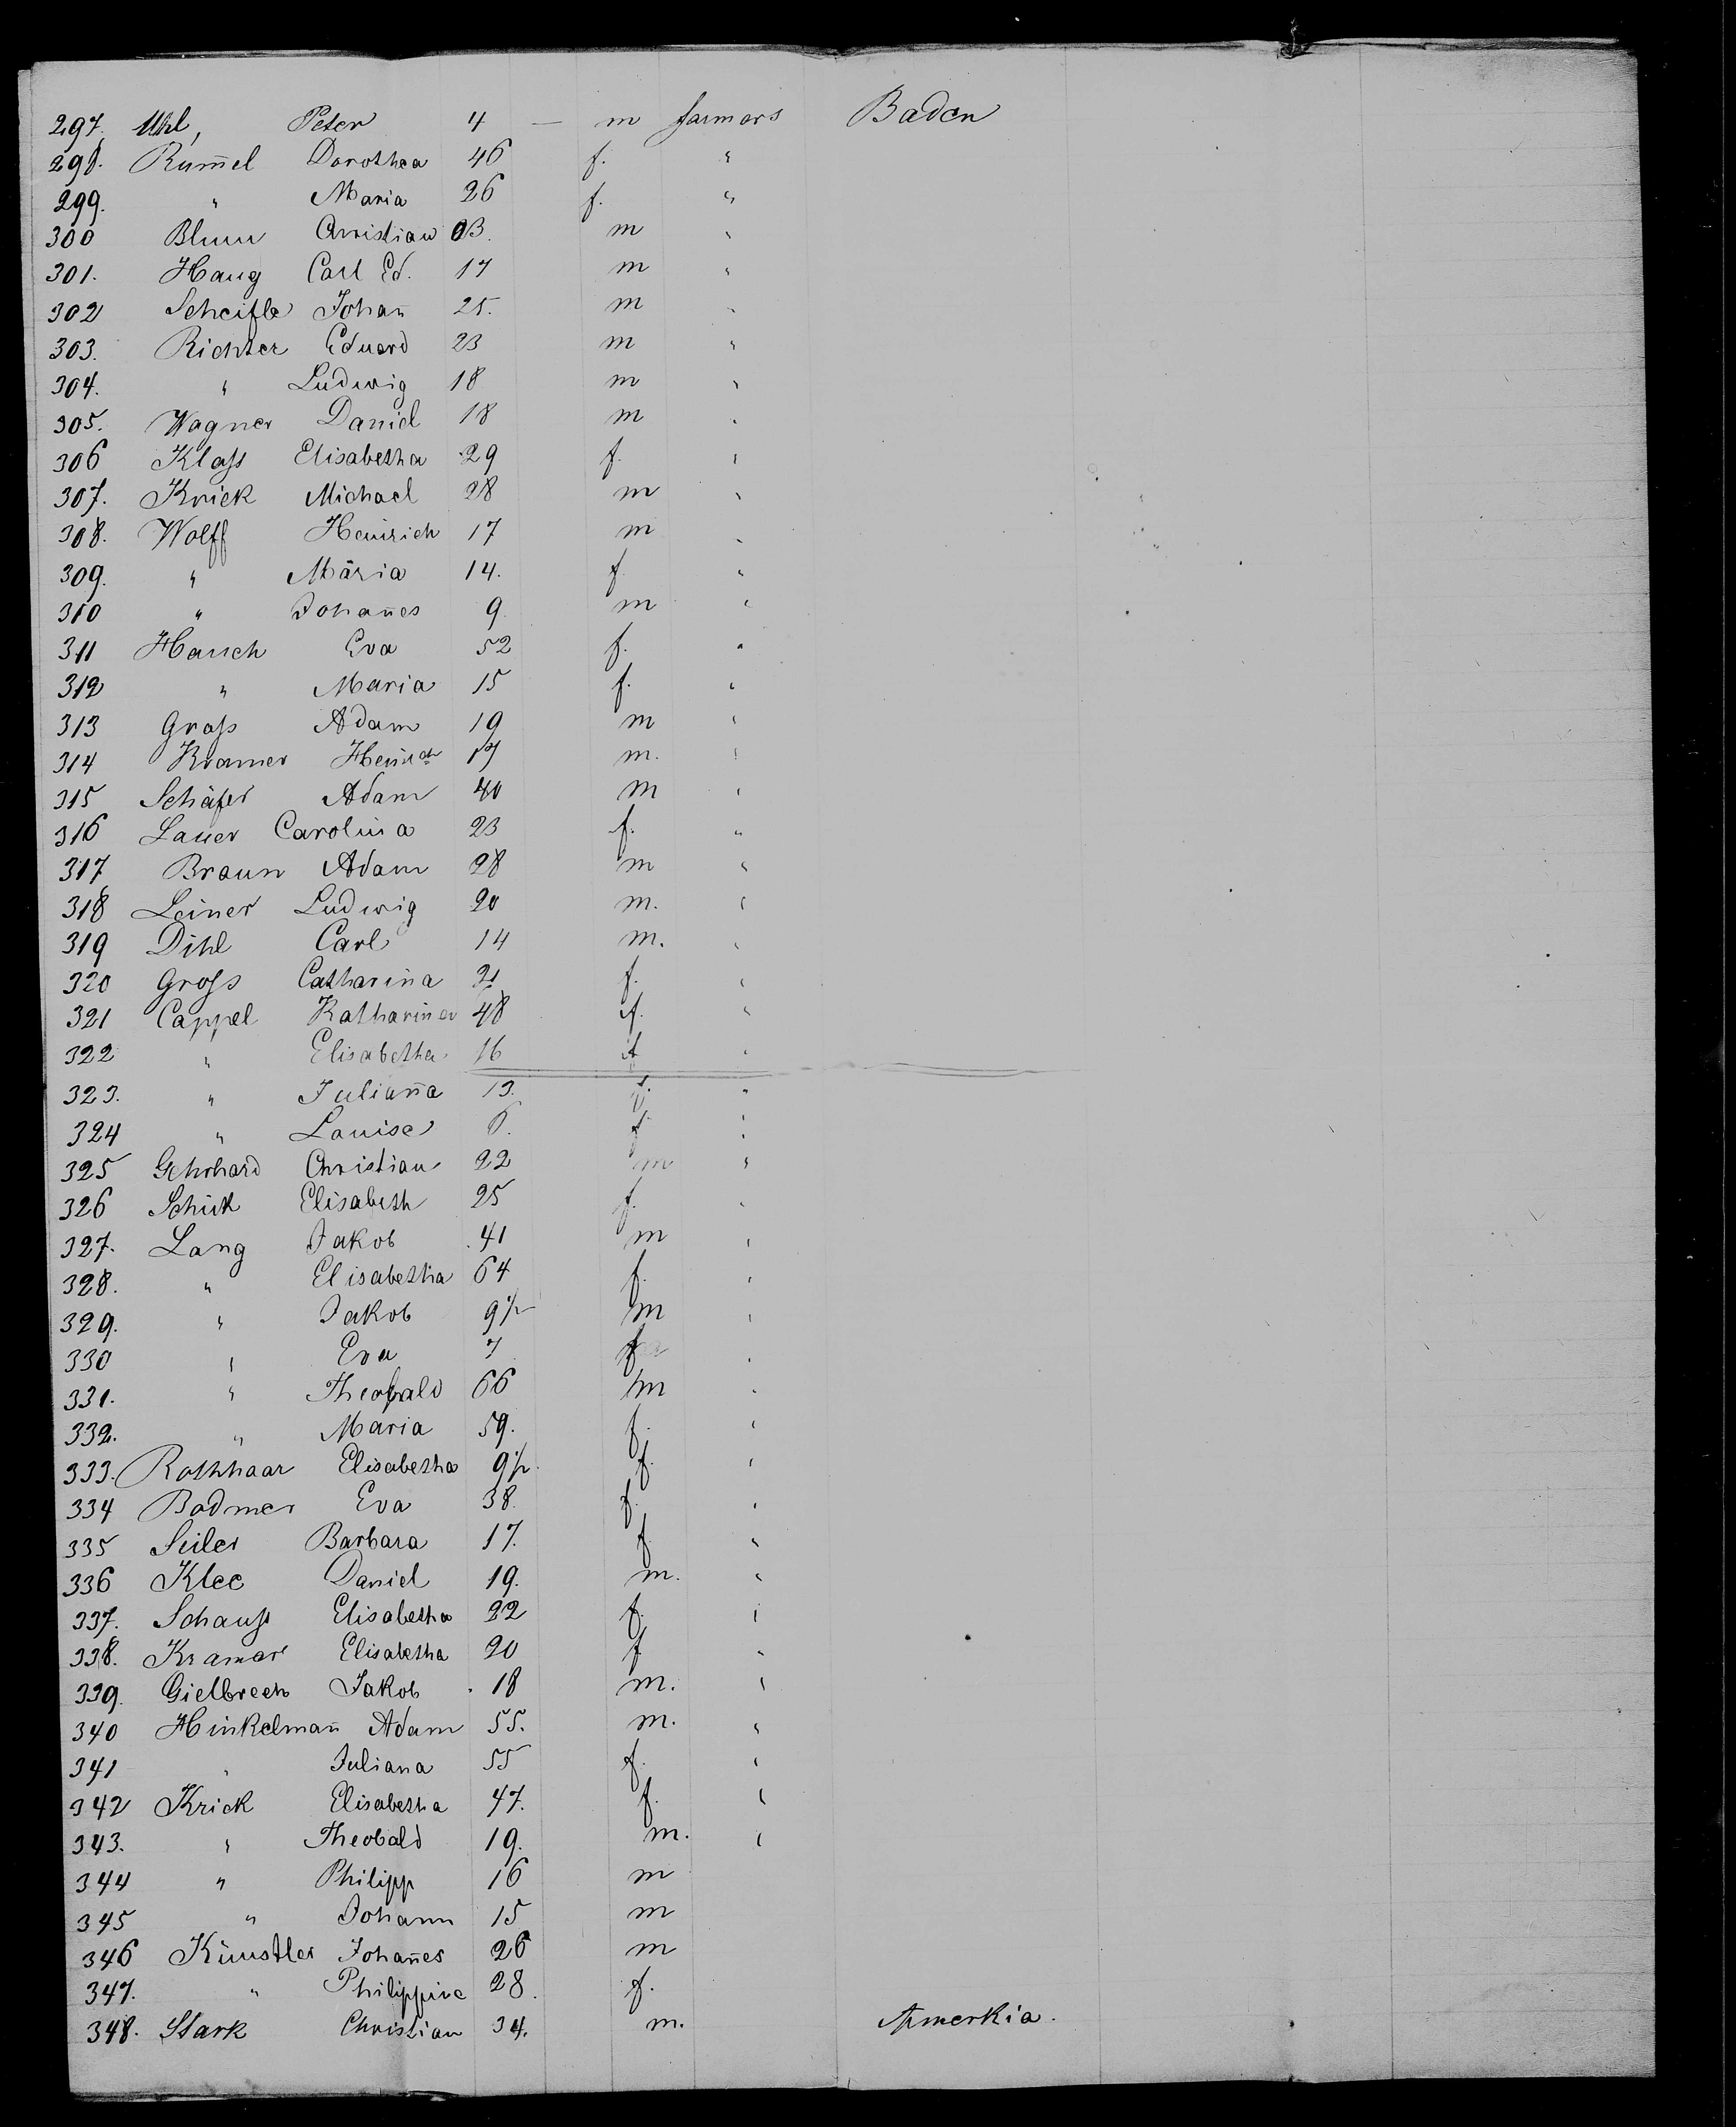 297. Uhl, Peter 4 — m farmers Baden
298. Rum̄el Dorothea 46 f. "
299. " Maria 26 f. "
300 Blum Christian 23. m "
301. Haug Carl Ed. 17 m "
302 Scheifle Johan̄ 25. m "
303. Richter Eduard 23 m "
304. " Ludwig 18 m "
305. Wagner Daniel 18 m "
306 Klaſs Elisabetha 29 f. "
307. Krick Michael 28 m "
308. Wolff Heinrich 17 m "
309. " Maria 14. f "
310 " Johan̄es 9. m "
311 Hauch Eva 52 f. "
312 " Maria 15 f. "
313 Groſs Adam 19 m "
314 Kramer Heinrch 17 m. "
315 Schäfer Adam 40 m "
316 Lauer Carolina 23 f. "
317 Braun Adam 28 m "
318 Leiner Ludwig 20 m. "
319 Dihl Carl 14 m. "
320 Groſs Catharina 21 f. "
321 Cappel Katharina 48 f. "
322 " Elisabetha 16 f "
323. " Julian̄a 13. f. "
324 " Louise 6. f. "
325 Gehrhard Christian 22 m "
326 Elisabeth 25 f. "
327. Lang Jakob 41 m "
328. " Elisabetha 64 f. "
329. " Jakob 9½ m "
330 " Eva 7 f "
331. " Theobald 66 m "
332. " Maria 59. f. "
333. Rothhaar Elisabetha 9½. f. "
334 Badmer Eva 38. f. "
335 Seiler Barbara 17. f. "
336 Klee Daniel 19. m. "
337. Schauſs Elisabetha 22 f. "
338. Kramer Elisabetha 20 f "
339. Gielbrech Jakob 18 m. "
340 Hinkelman̄ Adam 55. m. "
341 " Juliana 55 f. "
342 Krick Elisabetha 47. f. "
343. " Theobald 19. m. "
344 " Philipp 16 m
345 " Johann 15 m
346 Künstler Johan̄es 26 m
347. " Philippine 28. f.
348. Stark Christian 34. m. Amerkia.